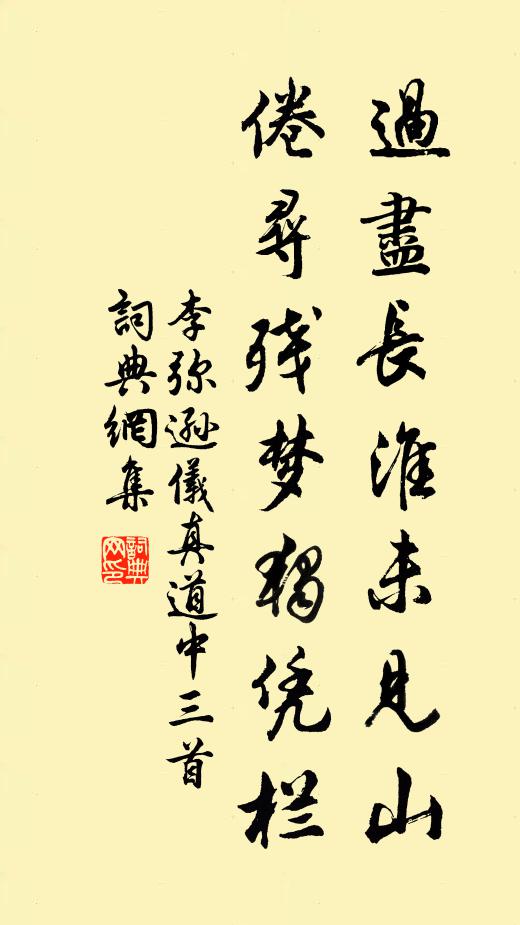 過盡長淮未見山
倦尋残梦獨凭栏
李弥遜儀真道中三首
詞典網集
詞典
网印